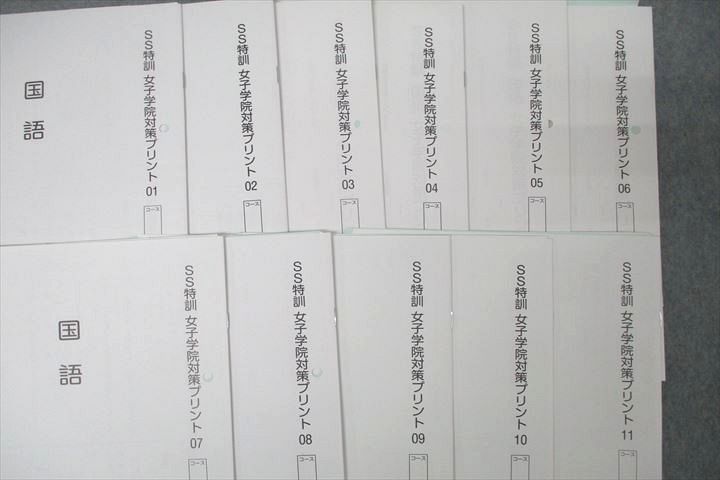 国語
SS特訓 女子学院対策プリント 01
コース
SS特訓 女子学院対策プリント 02
コース
SS特訓 女子学院対策プリント 03
コース
SS特訓 女子学院対策プリント 04
コース
SS特訓 女子学院対策プリント 05
コース
SS特訓 女子学院対策プリント 06
コース
国語
SS特訓 女子学院対策プリント 07
コース
SS特訓 女子学院対策プリント 08
コース
SS特訓 女子学院対策プリント 09
コース
SS特訓 女子学院対策プリント 10
コース
SS特訓 女子学院対策プリント 11
コース